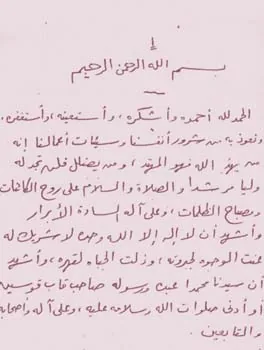 بسم الله الرحمن الرحيم
الحمد لله أحمده وأشكره، وأستعينه، وأستغفره،
ونعوذ به من شرور أنفسنا وسيئات أعمالنا إنه
من يهد الله فهو المهتد، ومن يضلل فلن تجد له
وليا مرشدا والصلاة والسلام على روح الكائنات
ومصباح الظلمات، وعلى آله السادة الأبرار
وأشهد أن لا إله إلا الله وحده لا شريك له
عنت الوجوه لجبروته، وذلت الجباه لقهره، وأشهد
أن سيدنا محمدا عبده ورسوله صاحب قاب قوسين
أو أدنى صلوات الله وسلامه عليه، وعلى آله وأصحابه
والتابعين.